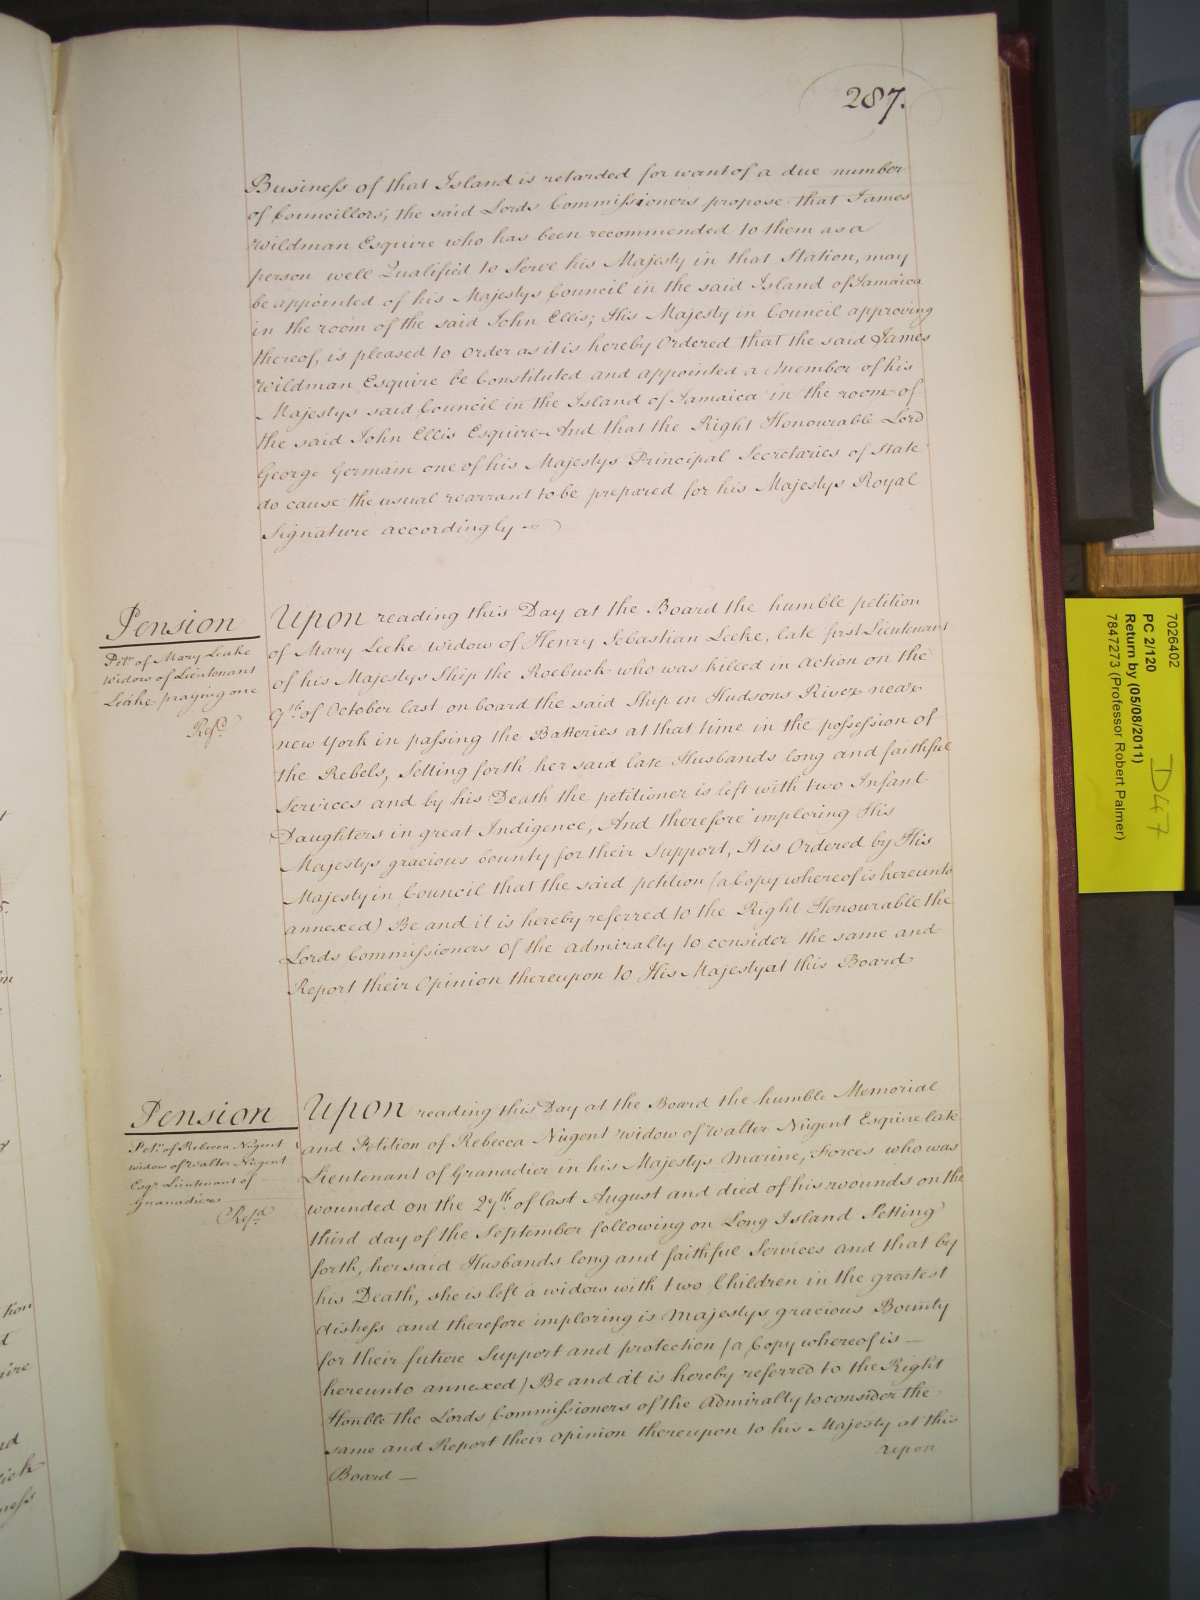 287.
Business of that Island is retarded for want of a due number
of Councillors; the said Lords Commissioners propose that James
Wildman Esquire who has been recommended to them as a
person well Qualified to Serve his Majesty in that Station, may
be appointed of his Majestys Council in the said Island of Jamaica
in the room of the said John Ellis; His Majesty in Council approving
thereof, is pleased to order as it is hereby Ordered that the said James
Wildman Esquire be Constituted and appointed a Member of his
Majestys said Council in the Island of Jamaica in the room of
the said John Ellis Esquire And that the Right Honourable Lord
George Germain one of his Majestys Principal Secretaries of State
do cause the usual warrant to be prepared for his Majestys Royal
Signature accordingly
Pension
Petn. of Mary Leake
widow of Lieutenant
Leake praying one
Refd.
Upon reading this Day at the Board the humble petition
of Mary Leeke widow of Henry Sebastian Leeke, late first Lieutenant
of his Majestys Ship the Roebuck who was killed in Action on the
9th. of October last on board the said Ship in Hudsons River near
new York in passing the Batteries at that time in the possession of
the Rebels, Setting forth her said late Husbands long and faithful
Services and by his Death the petitioner is left with two Infant
Daughters in great Indigence, And therefore imploring His
Majestys gracious bounty for their Support, It is Ordered by His
Majesty in Council that the said petition (a Copy whereof is hereunto
annexed) Be and it is hereby referred to the Right Honourable the
Lords Commissioners of the Admiralty to consider the same and
Report their Opinion thereupon to His Majesty at this Board
Pension
Petn. of Rebecca Nugent
widow of Walter Nugent
Esqr. Lieutenant of
Granadiers
Refd.
Upon reading this Day at the Board the humble Memorial
and Petition of Rebecca Nugent widow of Walter Nugent Esquire late
Lieutenant of Granadier in his Majestys Marine, Forces who was
wounded on the 27th. of last August and died of his wounds on the
third day of the September following on Long Island Setting
forth, her said Husbands long and faithful Services and that by
his Death, she is left a widow with two Children in the greatest
distress and therefore imploring is Majestys gracious Bounty
for their future Support and protection (a Copy whereof is —
hereunto annexed) Be and it is hereby referred to the Right
Honble the Lords Commissioners of the Admiralty to consider the
same and Report their Opinion thereupon to his Majesty at this
Board —
upon
7026402
PC 2/120
Return by (05/08/2011)
7847273 (Professor Robert Palmer)
D47